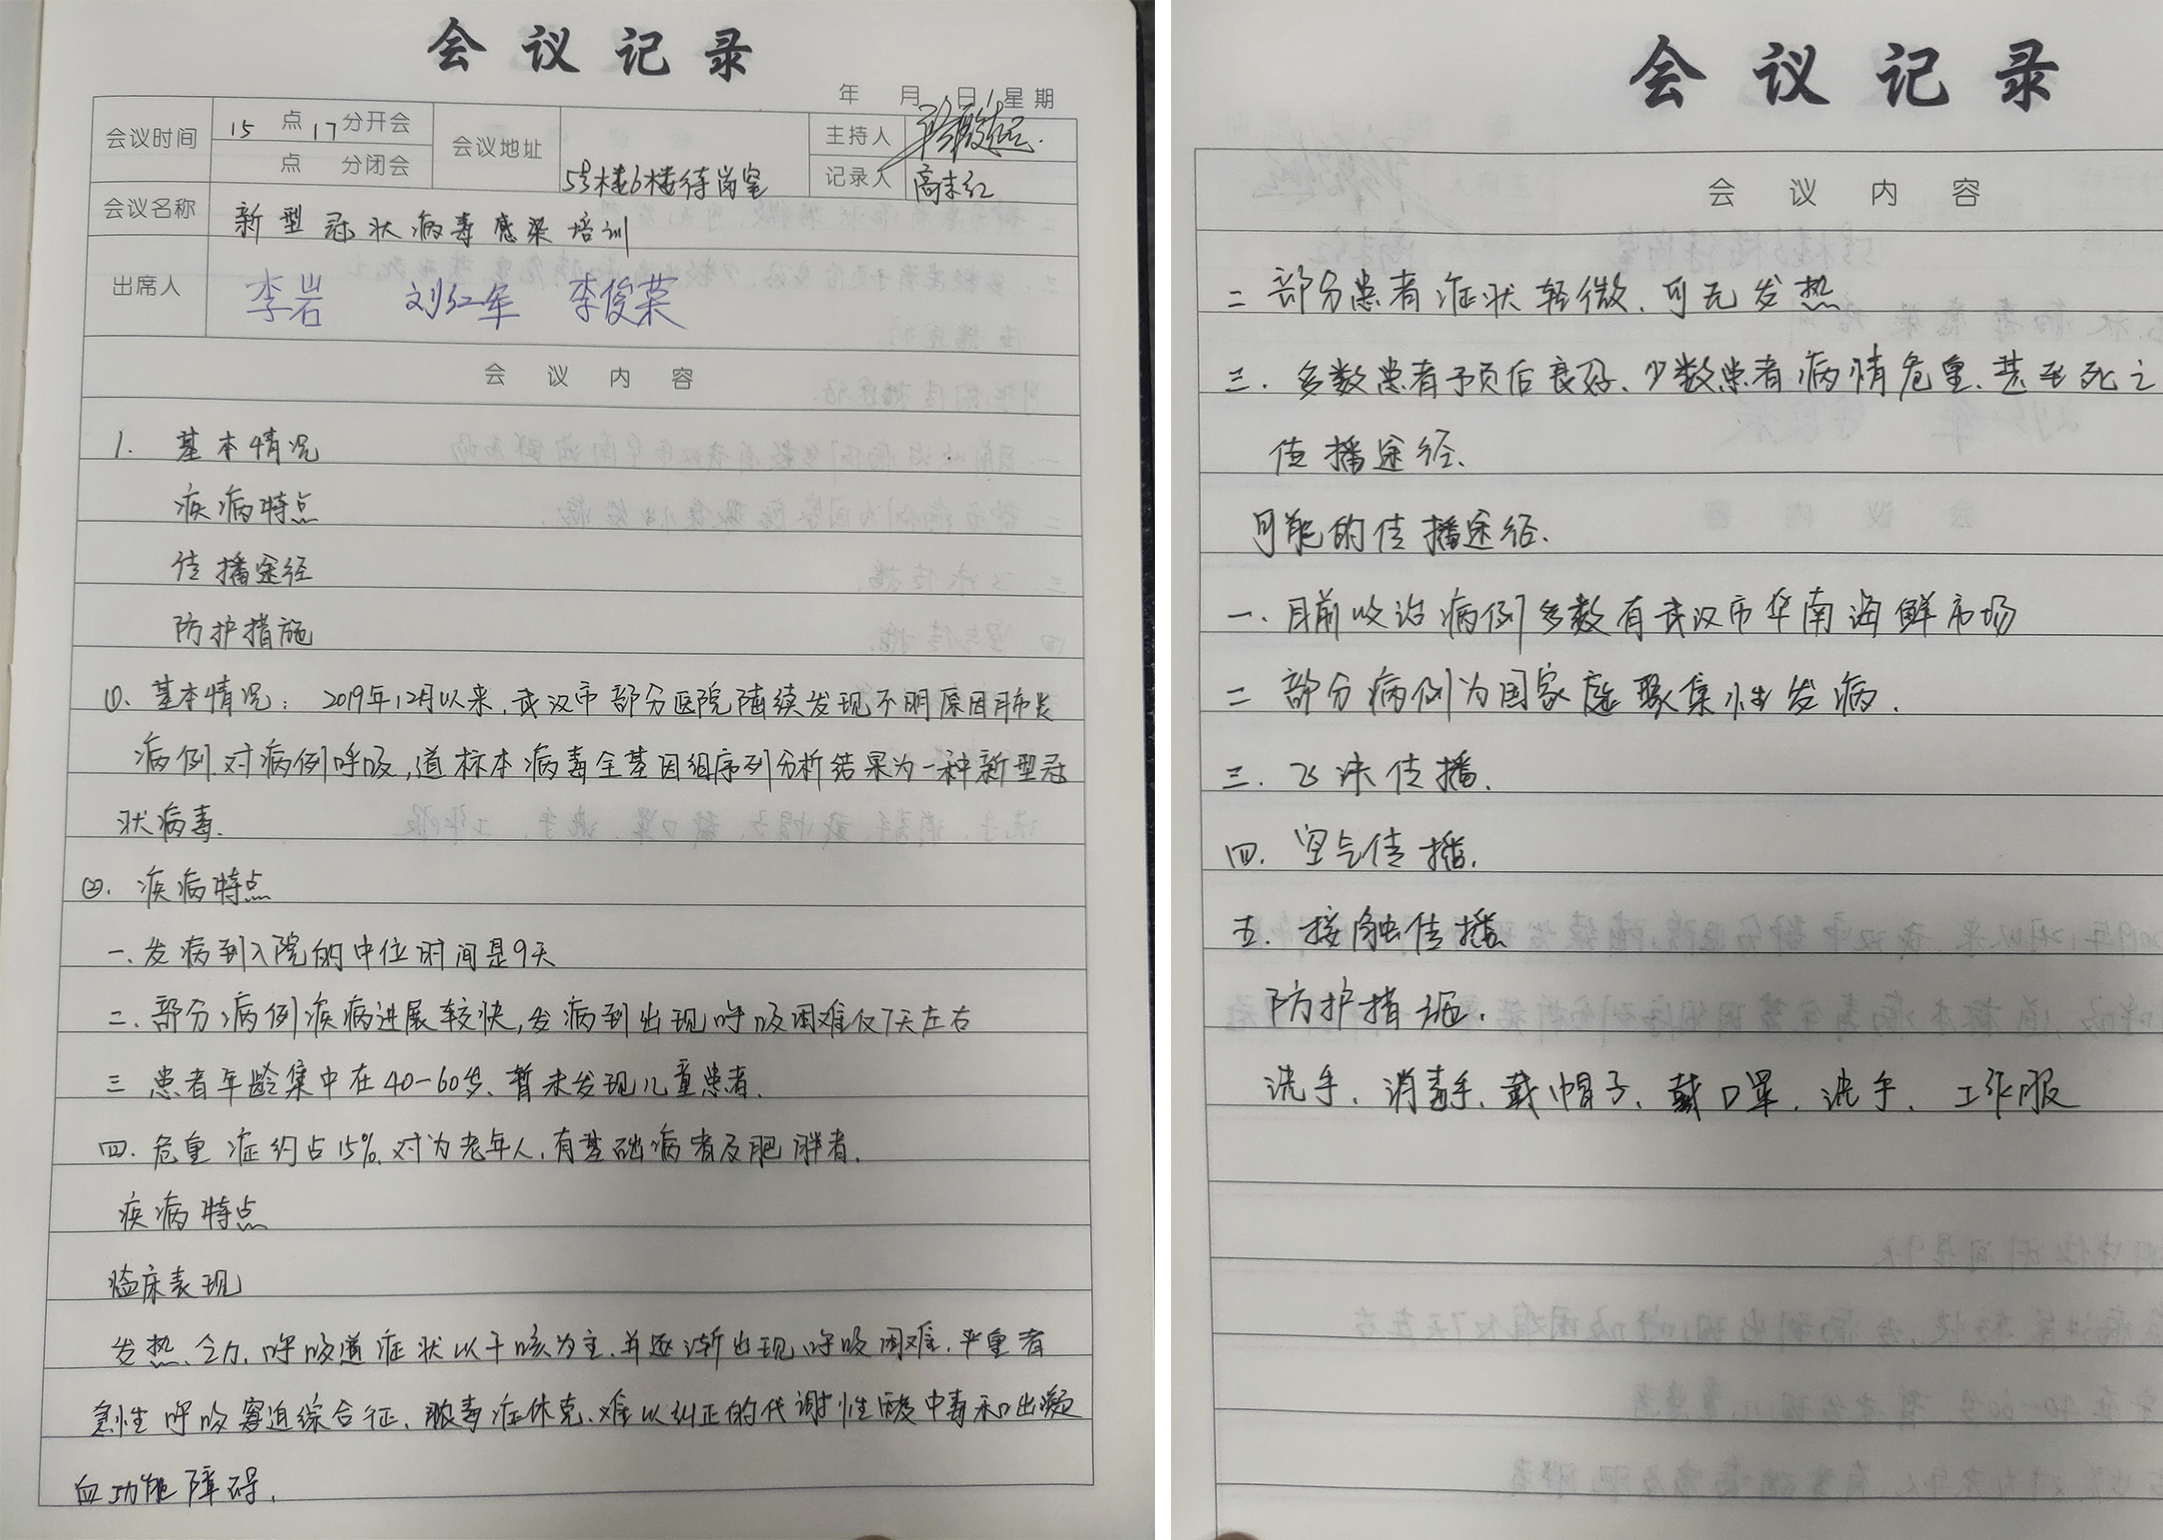 会议记录
年 月 日 星期
会议时间 15 点 17 分开会 会议地址 5号楼6楼待岗室 主持人
点 分闭会 记录人 高未红
会议名称 新型冠状病毒感染培训
出席人 李岩 刘红军 李俊荣
会议内容
1. 基本情况
疾病特点
传播途径
防护措施
①. 基本情况: 2019年12月以来,武汉市部分医院陆续发现不明原因肺炎
病例.对病例呼吸,道标本病毒全基因组序列分析结果为一种新型冠
状病毒.
②. 疾病特点
一.发病到入院的中位时间是9天
二.部分病例疾病进展较快,发病到出现呼吸困难仅7天左右
三 患者年龄集中在40-60岁、暂未发现儿童患者.
四.危重症约占15%.对为老年人,有基础病者及肥胖者.
疾病特点
临床表现
发热、乏力、呼吸道症状以干咳为主.并逐渐出现呼吸困难.严重者
急性呼吸窘迫综合征、脓毒症休克、难以纠正的代谢性酸中毒和出凝
血功能障碍.
会议记录
会议内容
二 部分患者症状轻微.可无发热
三.多数患者予预后良好、少数患者病情危重.甚至死亡
传播途径.
可能的传播途径.
一.目前收治病例多数有武汉市华南海鲜市场
二 部分病例为国家庭聚集性发病.
三.飞沫传播.
四.空气传播.
五.接触传播
防护措施.
洗手、消毒手、戴帽子、戴口罩、洗手、工作服